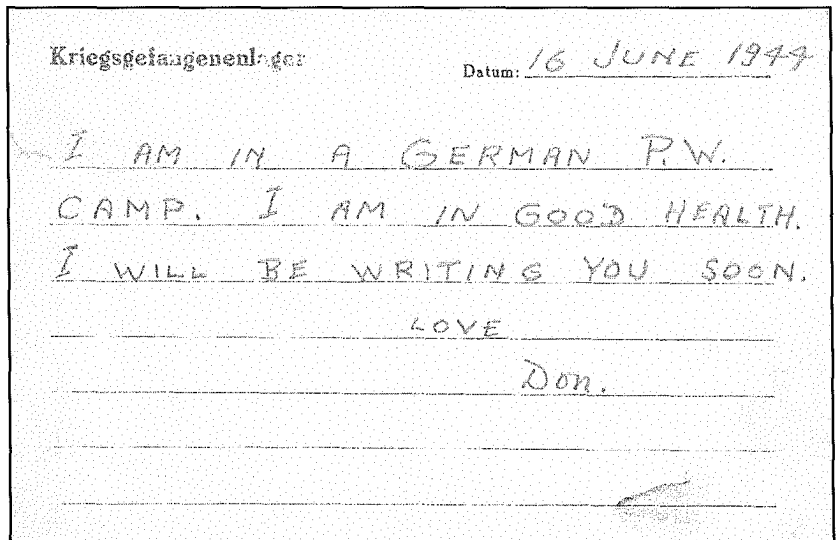 Kriegsgefangenenlager
Datum: 16 JUNE 1944
I AM IN A GERMAN P.W.
CAMP. I AM IN GOOD HEALTH.
I WILL BE WRITING YOU SOON.
LOVE
Don.